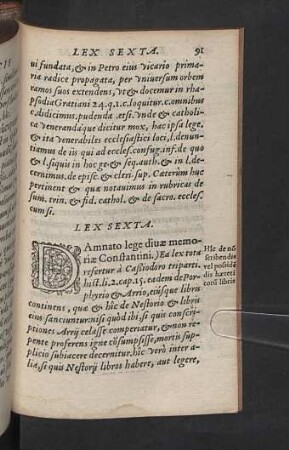 LEX SEXTA. 91
ui fundata, & in Petro eius vicario prima-
ria radice propagata, per vniuersum orbem
ramos suos extendens, vt & docemur in rha-
psodia Gratiani 24. q. 1. c. loquitur. c. omnibus
c. didicimus. pudenda. et si. vnde & catholi-
ta veneranda que dicitur mox, hac ipsa lege,
& ita venerabiles ecclesiastici loci, l. denun-
tiamus de iis qui ad eccles. confug. inf. de quo
& l. si quis in hoc ge. & seq. auth. & in l. de-
cernimus. de episc. & cleri. sup. Caterum huc
pertinent & quæ notauimus in rubricas de
sum. trin. & fid. cathol. & de sacro. eccles.
cum si.
LEX SEXTA.
DAmnato lege diuæ memo-
riæ Constantini.) Ea lex tota
refertur à Cassiodoro triparti.
hist. li. 2. cap. 15. eadem de Por-
phyrio & Arrio, eiusque libris
continens, quæ & hic de Nestorio & libris
eius sanciuntur: nisi quòd ibi, si quis conscri-
ptiones Arrij celasse comperiatur, & non re-
pente proferens igne cōsumpsisse, mortis sup-
plicio subiacere decernitur. hic verò inter a-
lia, si quis Nestorij libros habere, aut legere,
Hic de nō
scribendis
vel possidē
dis hæreti
coru libris